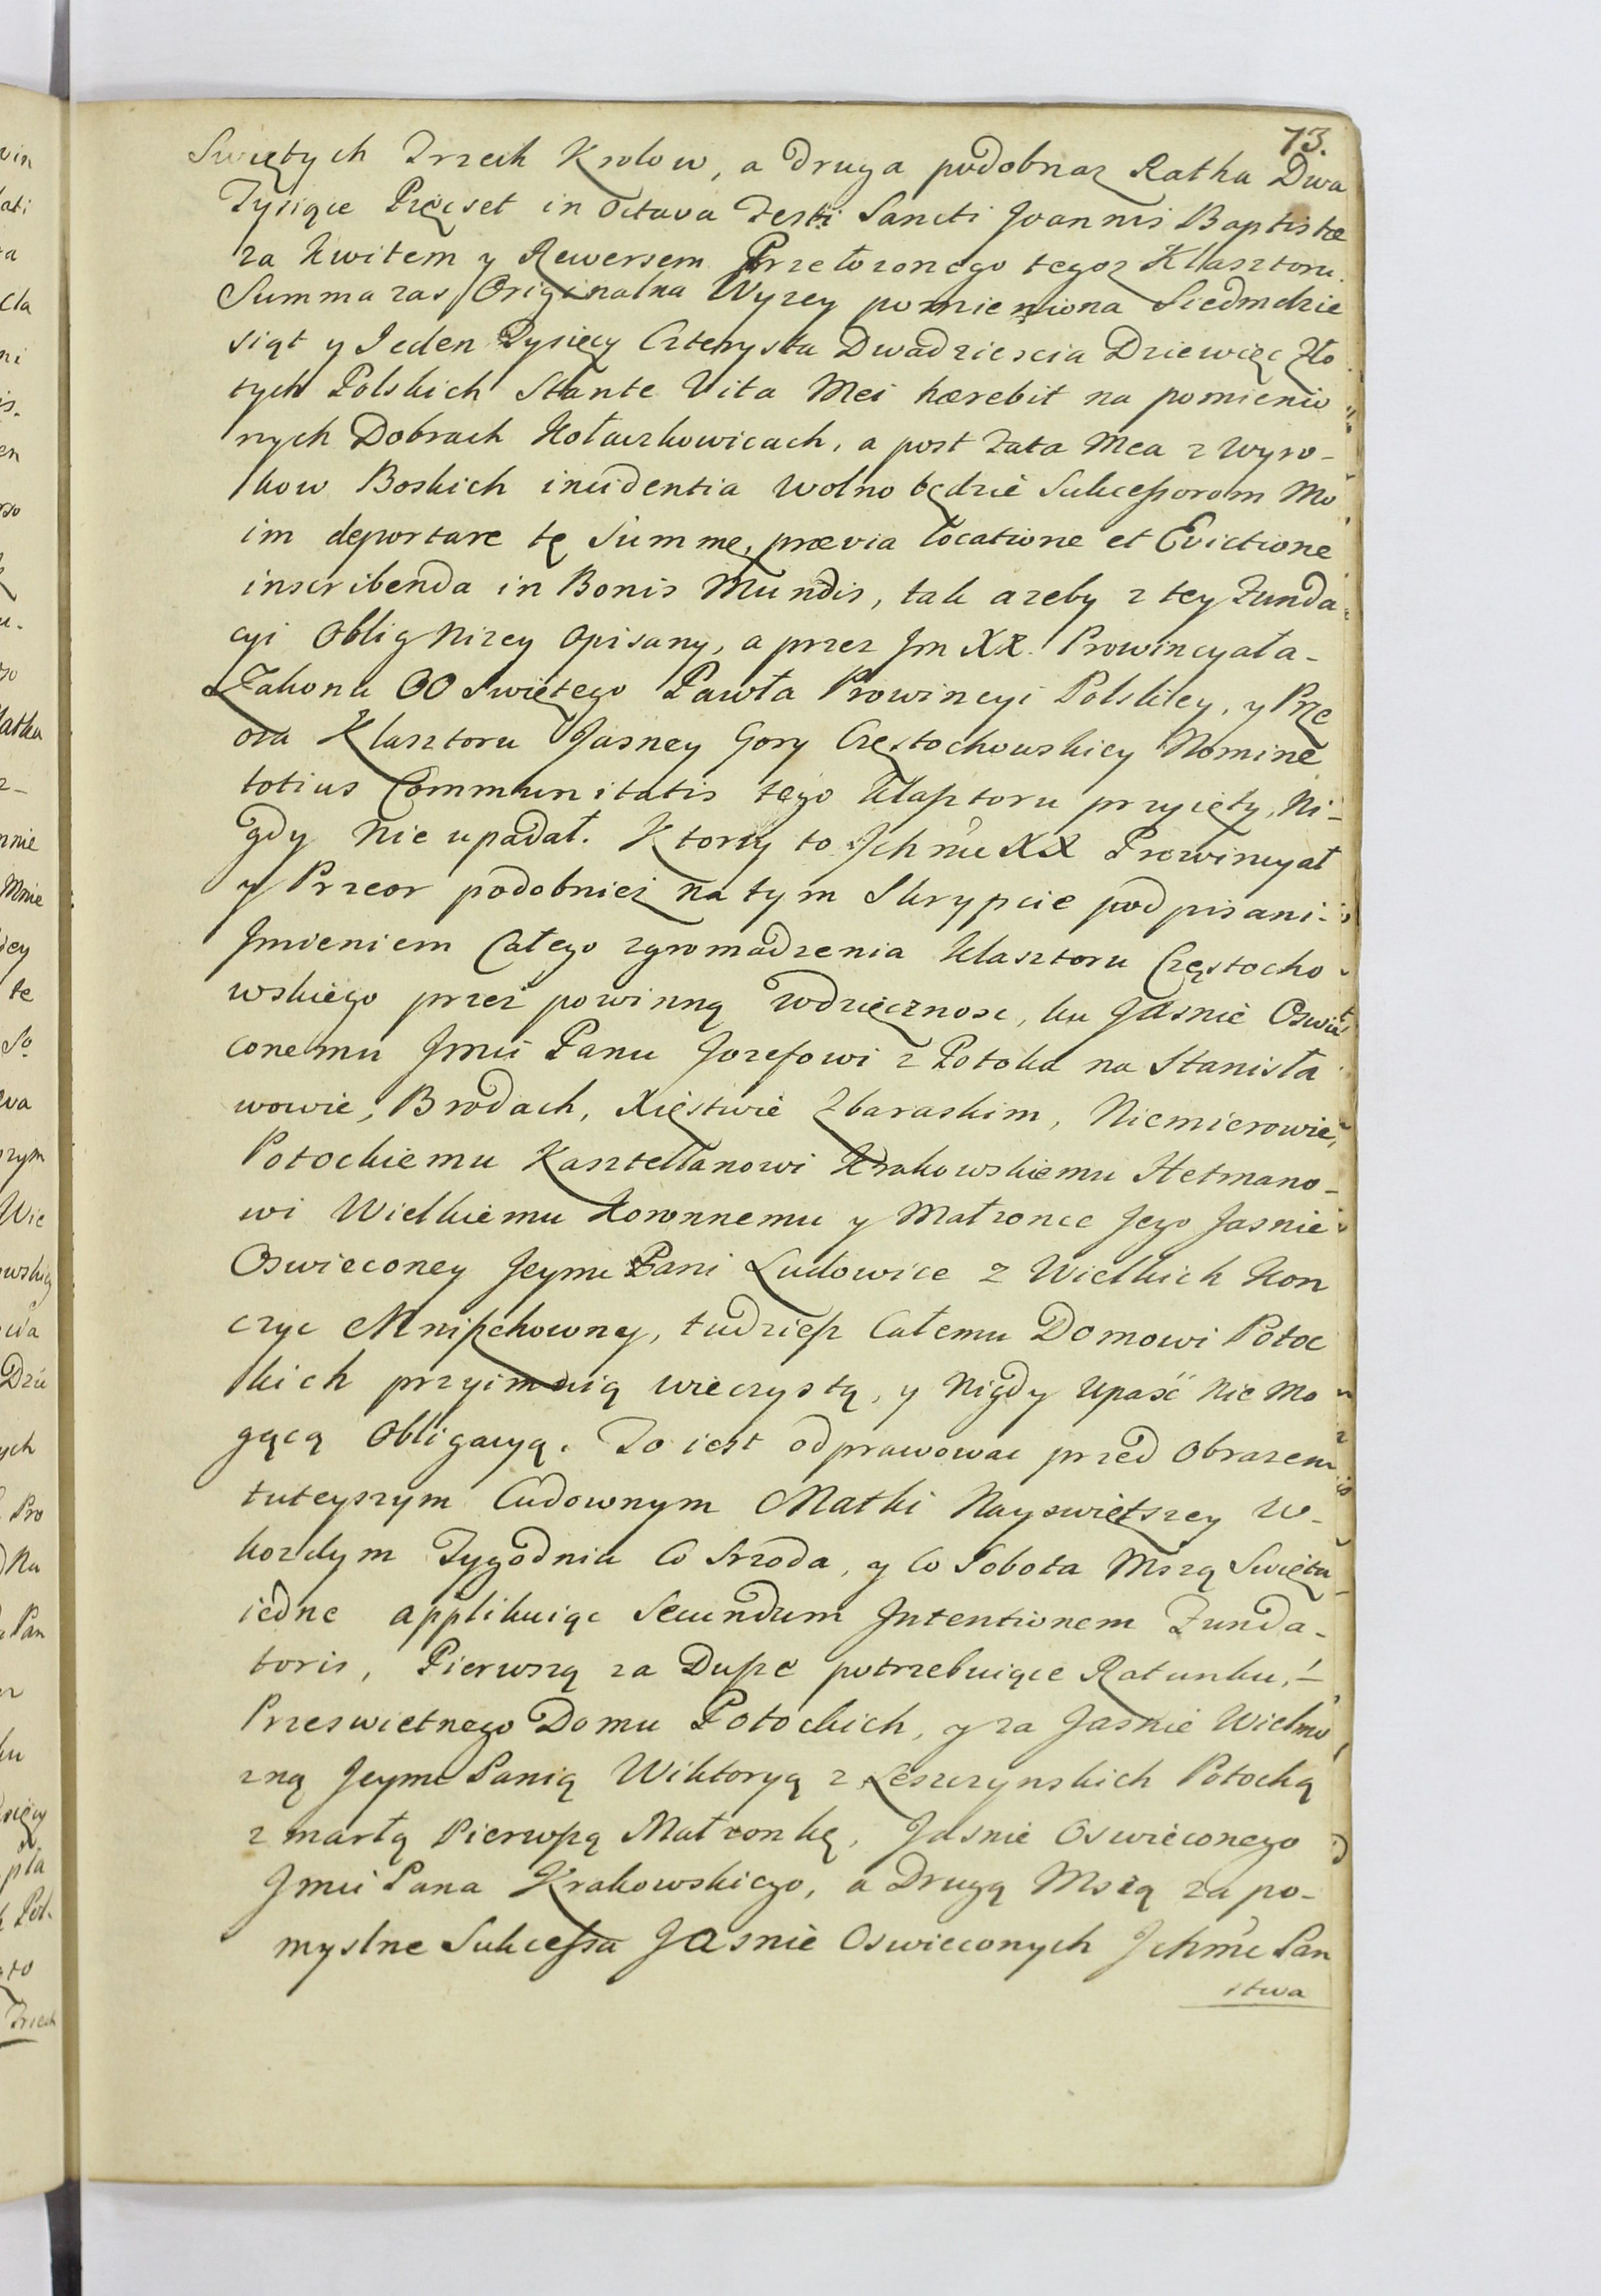 73.
Swiętych Trzech Krolow, a druga podobnaz Ratha Dwa
Tysiące Pięcset in Octava Festi Sancti Joannis Baptistæ
za kwitem y Rewersem Przełozonego tegoz Klasztoru.
Summa zas Originalna Wyzey pomieniona Siedmdzie
siąt y Jeden Tysięcy Czterysta Dwadziescia Dziewięc Zło
tych Polskich Stante Vita Mei hærebit na pomienio
nych Dobrach Kołaczkowicach, a post Fata Mea z wyro-
kow Boskich incidentia wolno będzie Sukcessorom Mo
im deportare tę Summę, prævia locatione et Evictione
inscribenda in Bonis Mundis, tak azeby z tey Funda
cyi Oblig Nizey Opisany, a przez Jm XX. Prowincyała-
Zakonu OO Swiętego Pawła Prowincyi Polskiey, y Prze
ora Klasztoru Jasney Gory Częstochowskiey Nomine
totius Communitatis tego Klasztoru przyięty, Ni-
gdy Nie upadał. Ktorzy to Jchmć XX Prowincyał
y Przeor podobniez na tym Skrypcie podpisani-
Jmieniem Całego zgromadzenia Klasztoru Częstocho
wskiego przez powinną wdzięcznosc, ku Jasnie Oswie
conemu Jmći Panu Jozefowi z Potoka na Stanisła
wowie, Brodach, Xięstwie Zbaraskim, Niemierowie,
Potockiemu Kasztellanowi Krakowskiemu Hetmano-
wi Wielkiemu Koronnemu y Małzonce Jego Jasnie
Oswieconey Jeymć Pani Ludowice z Wielkich Kon
czyc Mniszchowney, tudziesz Całemu Domowi Potoc
kich przyimuią wieczystą, y Nigdy Upaść Nie Mo
gącą Obligacyą. To iest odprawowac przed Obrazem
tuteyszym Cudownym Matki Nayswiętszey w-
kozdym Tygodniu Co Srzoda, y Co Sobota Mszą Swiętą
iedne applikuiąc Secundum Intentionem Funda-
toris, Pierwszą za Dusze potrzebuiące Ratunku,
Przeswietnego Domu Potockich, y za Jasnie Wielmo
zną Jeymć Panią Wiktoryą z Leszczynskich Potocką
zmarłą Pierwszą Małzonkę, Jasnie Oswieconego
Jmći Pana Krakowskiego, a Drugą Mszą za po-
myslne Sukcessa Jasnie Oswieconych Jchmć Pan
stwa